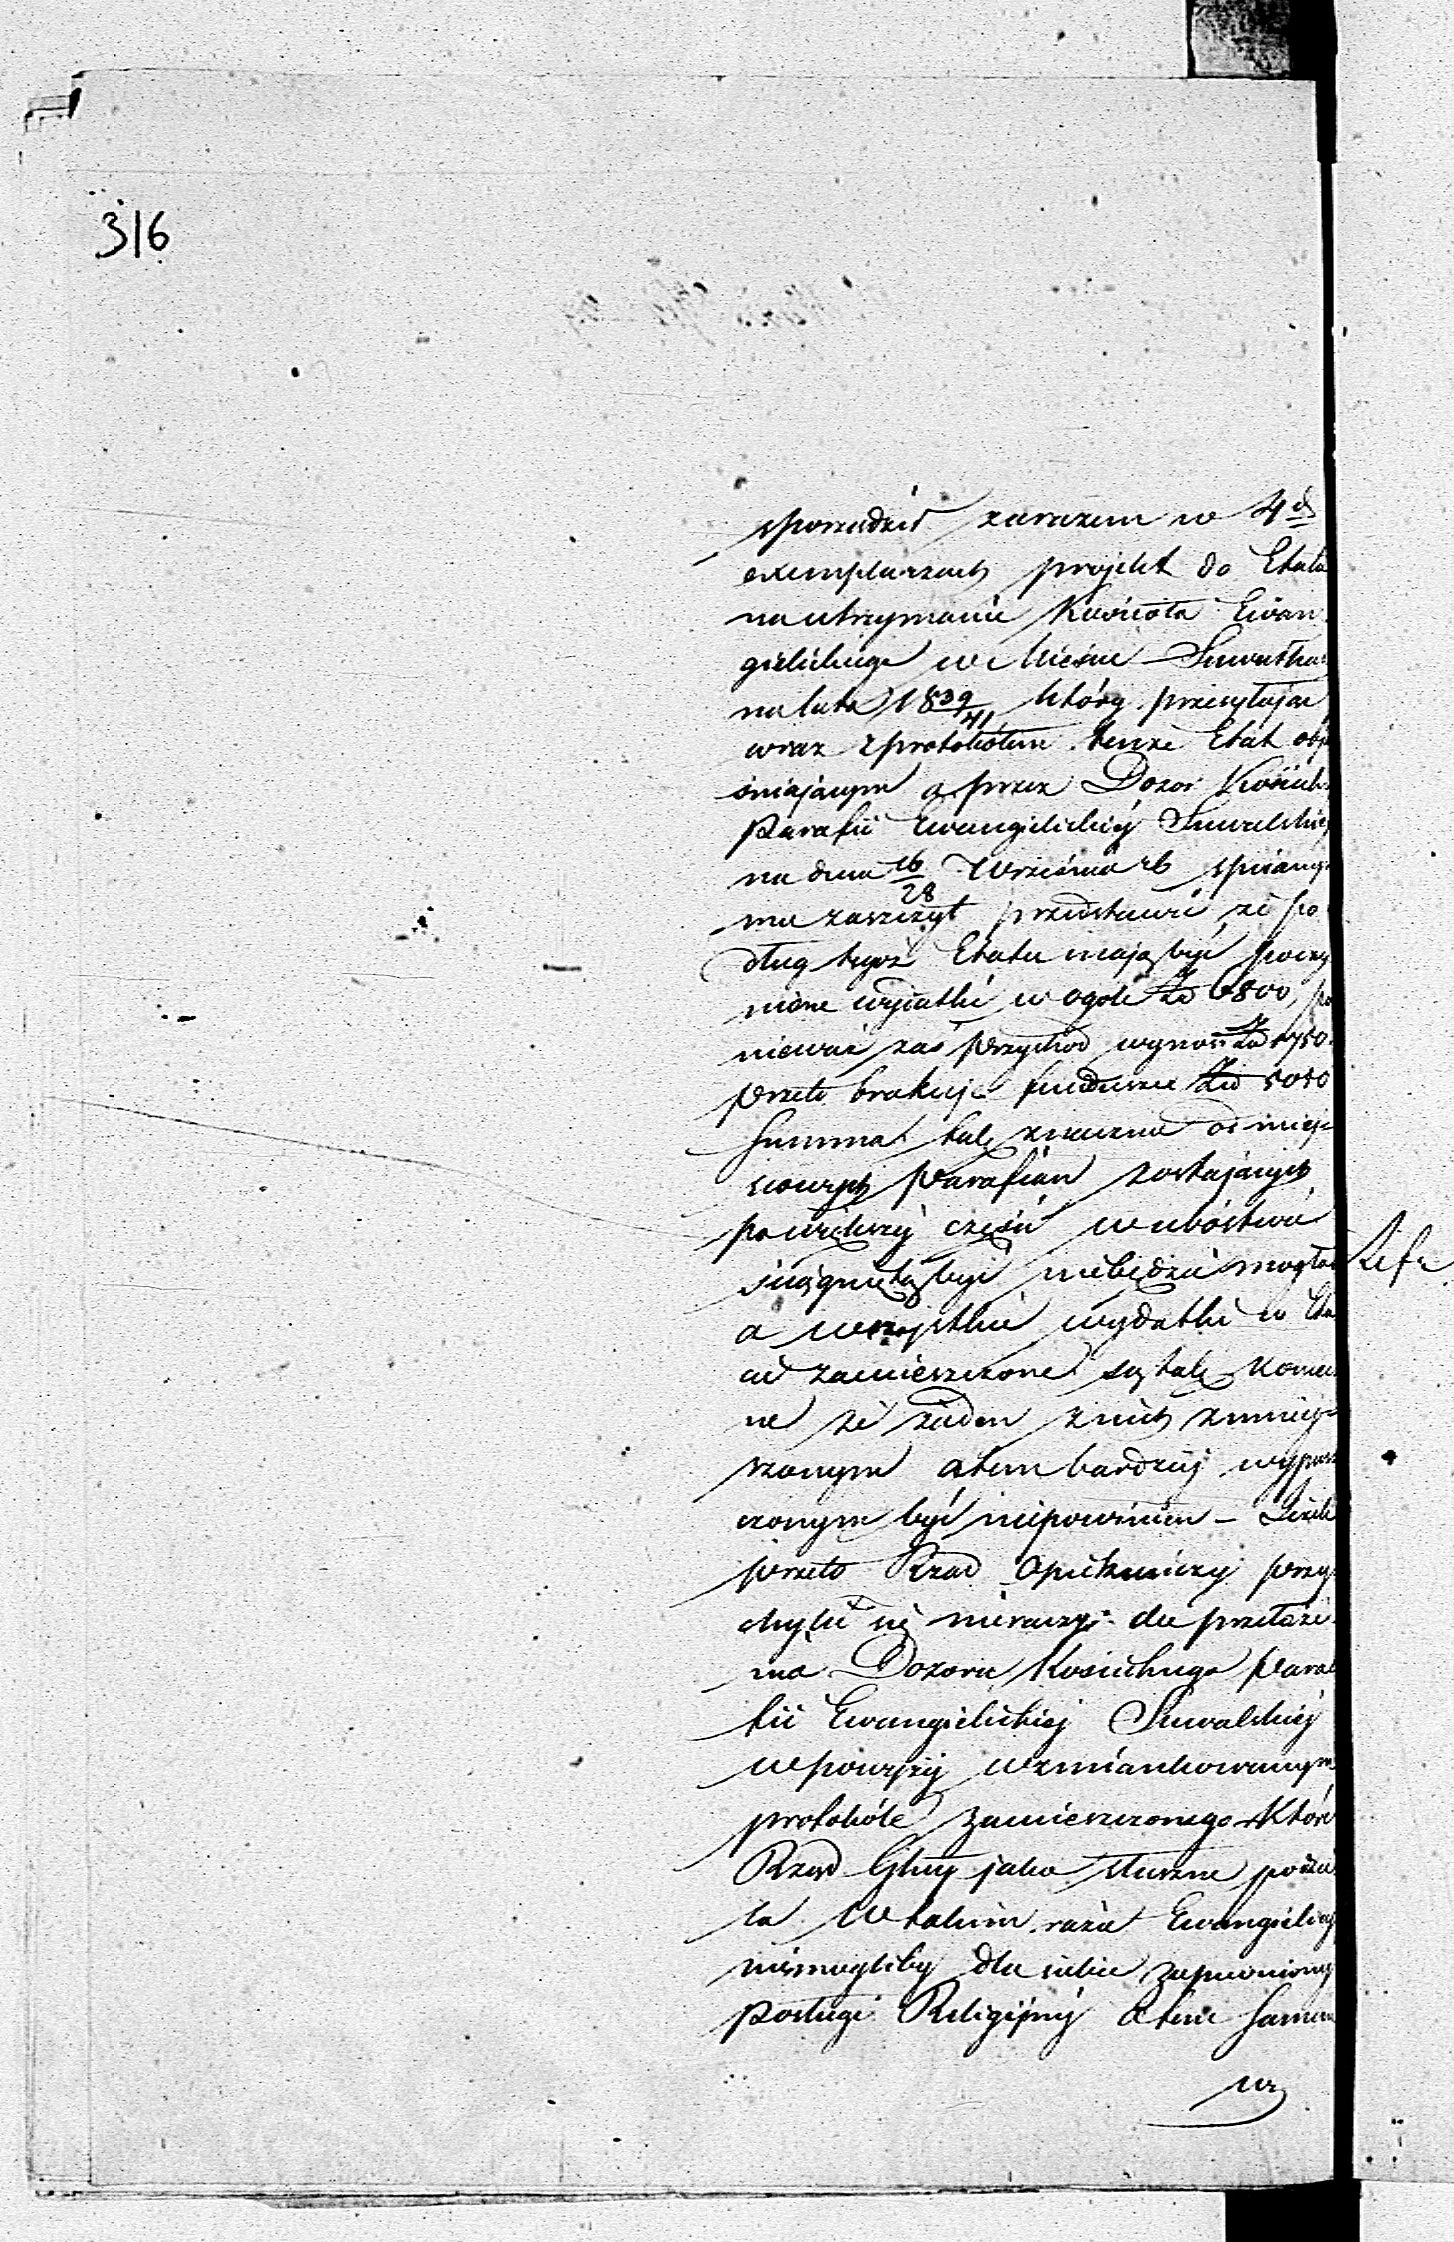 316
sporządzić zarazem w 4ch
exemplarzach projekt do Etatu
na utrzymanie Kościoła Ewan
gielickiego w Mieście Suwałka
na lata 1839/41, który przesyłając
wraz z protokółem tenże Etat obja
śniającym a przez Dozór Kościeln
Parafii Ewangielickiej Suwalskiej
na dniu 16/28 Września rb spisanym
ma zaszczyt przedstawić, że po
dług tegoż Etatu mają być poczy
nione wydatki w ogóle Zł 6800, po
nieważ zaś przychód wynosi Zł 1750
przeto brakuje funduszu Zł 5050
Summa tak znaczna od miej
scowych Parafian zostających
po większej części w ubóstwie
ściągniętą być niebędzie mogła
a wszystkie wydatki w Eta
cie zamieszczone są tak koniecz
ne że żaden z nich zmniej
szonym a tem bardziej wypusz
czonym być niepowinien – Jeżeli
przeto Rząd Opiekuńczy przy
chylić się nieraczy do przełoże
nia Dozoru Kościelnego Para
fii Ewangielickiej Suwalskiej
w powyżej wzmiankowanym
protokóle zamieszczonego, które
Rząd Głny jako słuszne poczu
la W takim razie Ewangelicy
niemogliby dla siebie zapewnionej
Posługi Religijnej a tem samem